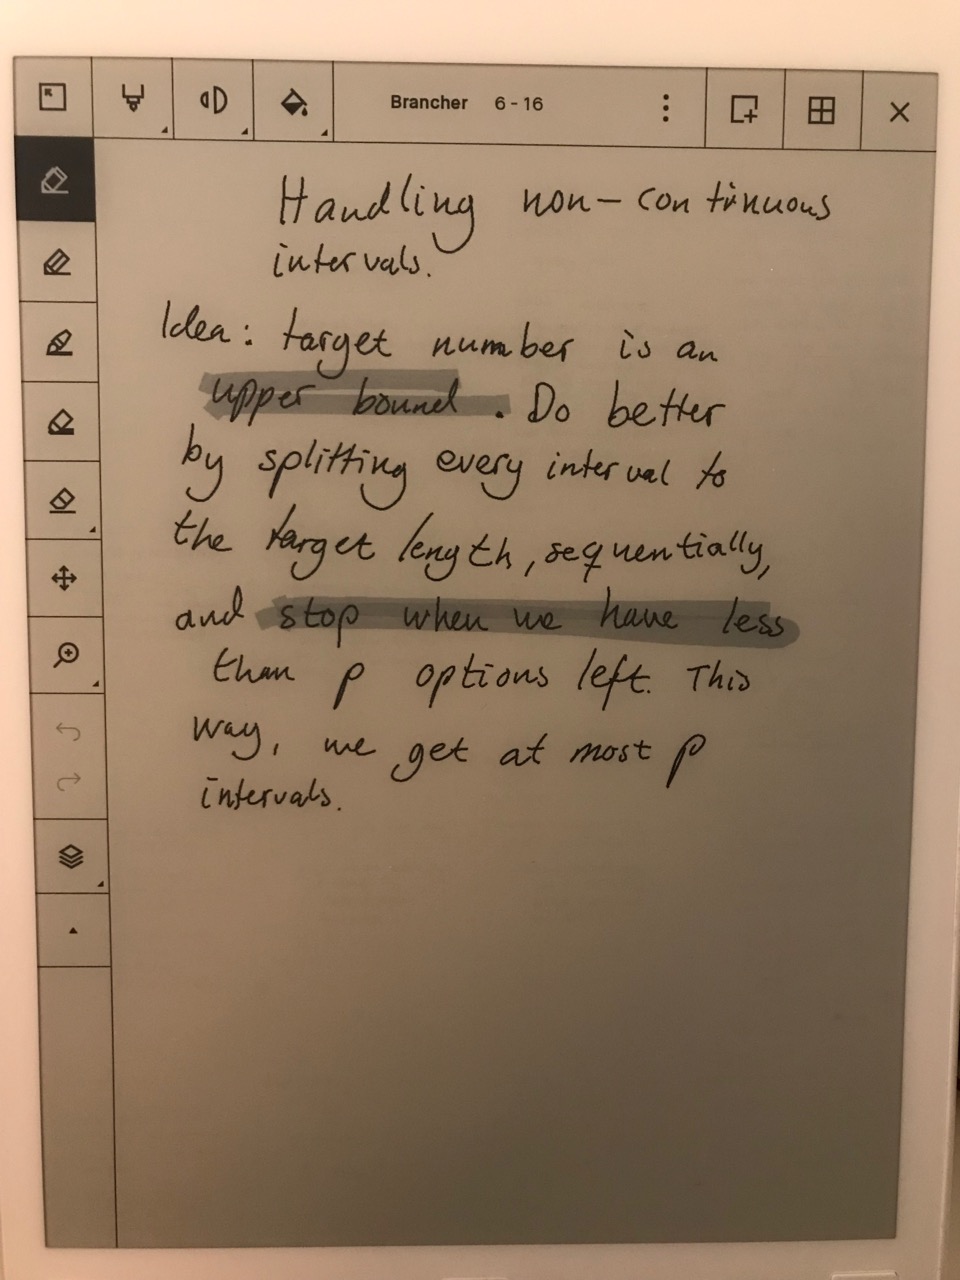 Brancher 6 - 16
Handling non-continuous
intervals.
Idea: target number is an
upper bound. Do better
by splitting every interval to
the target length, sequentially,
and stop when we have less
than p options left. This
way, we get at most p
intervals.